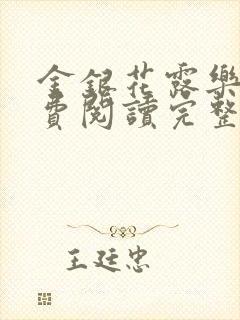 金銀花露樂
費閱讀完整
王廷忠